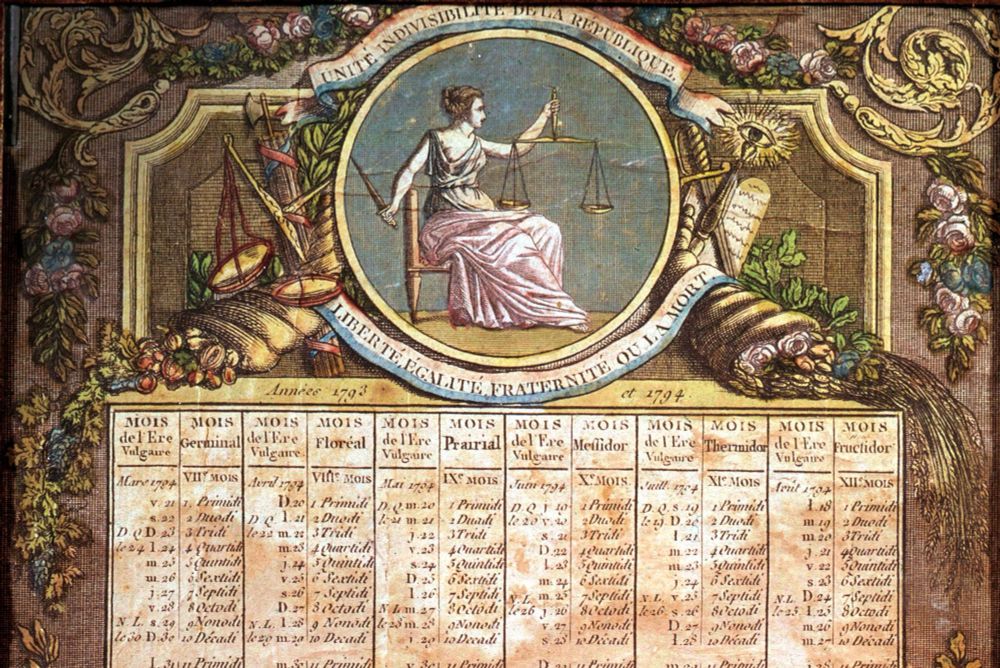 UNITÉ INDIVISIBILITÉ DE LA RÉPUBLIQUE.
LIBERTÉ, ÉGALITÉ, FRATERNITÉ OU LA MORT
Années 1793 et 1794.
MOIS MOIS MOIS MOIS MOIS MOIS MOIS MOIS MOIS MOIS MOIS MOIS
de l'Ere Germinal de l'Ere Floréal de l'Ere Prairial de l'Ere Messidor de l'Ere Thermidor de l'Ere Fructidor
Vulgaire Vulgaire Vulgaire Vulgaire Vulgaire Vulgaire
Mars 1794 VIIe MOIS Avril 1794 VIIIe MOIS Mai 1794 IXe MOIS Juin 1794 Xe MOIS Juill. 1794 XIe MOIS Aout 1794 XIIe MOIS
v. 21 1 Primidi D. 20 1 Primidi D.Q. m. 20 1 Primidi D.Q. j. 19 1 Primidi D.Q. s. 19 1 Primidi l. 18 1 Primidi
s. 22 2 Duodi D.Q. l. 21 2 Duodi le 21 m. 21 2 Duodi le 20 v. 20 2 Duodi le 19 D. 20 2 Duodi m. 19 2 Duodi
D.Q. D. 23 3 Tridi le 22 m. 22 3 Tridi j. 22 3 Tridi s. 21 3 Tridi l. 21 3 Tridi m. 20 3 Tridi
le 24 l. 24 4 Quartidi m. 23 4 Quartidi v. 23 4 Quartidi D. 22 4 Quartidi m. 22 4 Quartidi j. 21 4 Quartidi
m. 25 5 Quintidi j. 24 5 Quintidi s. 24 5 Quintidi l. 23 5 Quintidi m. 23 5 Quintidi v. 22 5 Quintidi
m. 26 6 Sextidi v. 25 6 Sextidi D. 25 6 Sextidi m. 24 6 Sextidi j. 24 6 Sextidi s. 23 6 Sextidi
j. 27 7 Septidi s. 26 7 Septidi l. 26 7 Septidi N.L. m. 25 7 Septidi N.L. v. 25 7 Septidi N.L. D. 24 7 Septidi
v. 28 8 Octodi D. 27 8 Octodi N.L. m. 27 8 Octodi le 26 j. 26 8 Octodi le 26 s. 26 8 Octodi le 25 l. 25 8 Octodi
N.L. s. 29 9 Nonodi N.L. l. 28 9 Nonodi le 28 m. 28 9 Nonodi v. 27 9 Nonodi D. 27 9 Nonodi m. 26 9 Nonodi
le 30 D. 30 10 Décadi le 29 m. 29 10 Décadi j. 29 10 Décadi s. 28 10 Décadi l. 28 10 Décadi m. 27 10 Décadi
l. 31 11 Primidi m. 30 11 Primidi v. 30 11 Primidi D. 29 11 Primidi 11 Primidi 11 Primidi